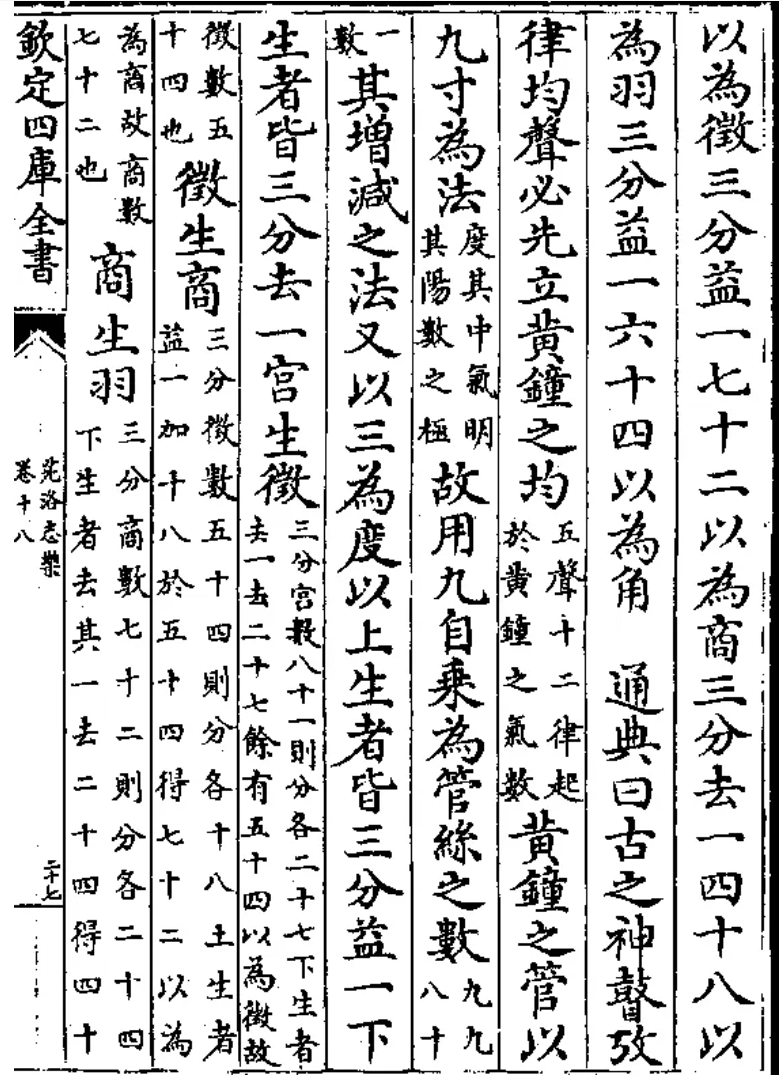 以為徵三分益一七十二以為商三分去一四十八以
為羽三分益一六十四以為角　通典曰古之神瞽攷
律均聲必先立黄鐘之均五聲十二律起於黄鐘之氣數黄鐘之管以
九寸為法度其中氣明其陽數之極故用九自乗為管絲之數九九八十
一數其增減之法又以三為度以上生者皆三分益一下
生者皆三分去一宫生徵三分宫數八十一則分各二十七下生者去一去二十七餘有五十四以為徵故
徵數五十四也徵生商三分徵數五十四則分各十八土生者益一加十八於五十四得七十二以為
為商故商數七十二也商生羽三分商數七十二則分各二十四下生者去其一去二十四得四十
欽定四庫全書
苑洛志樂
卷十八
二十七